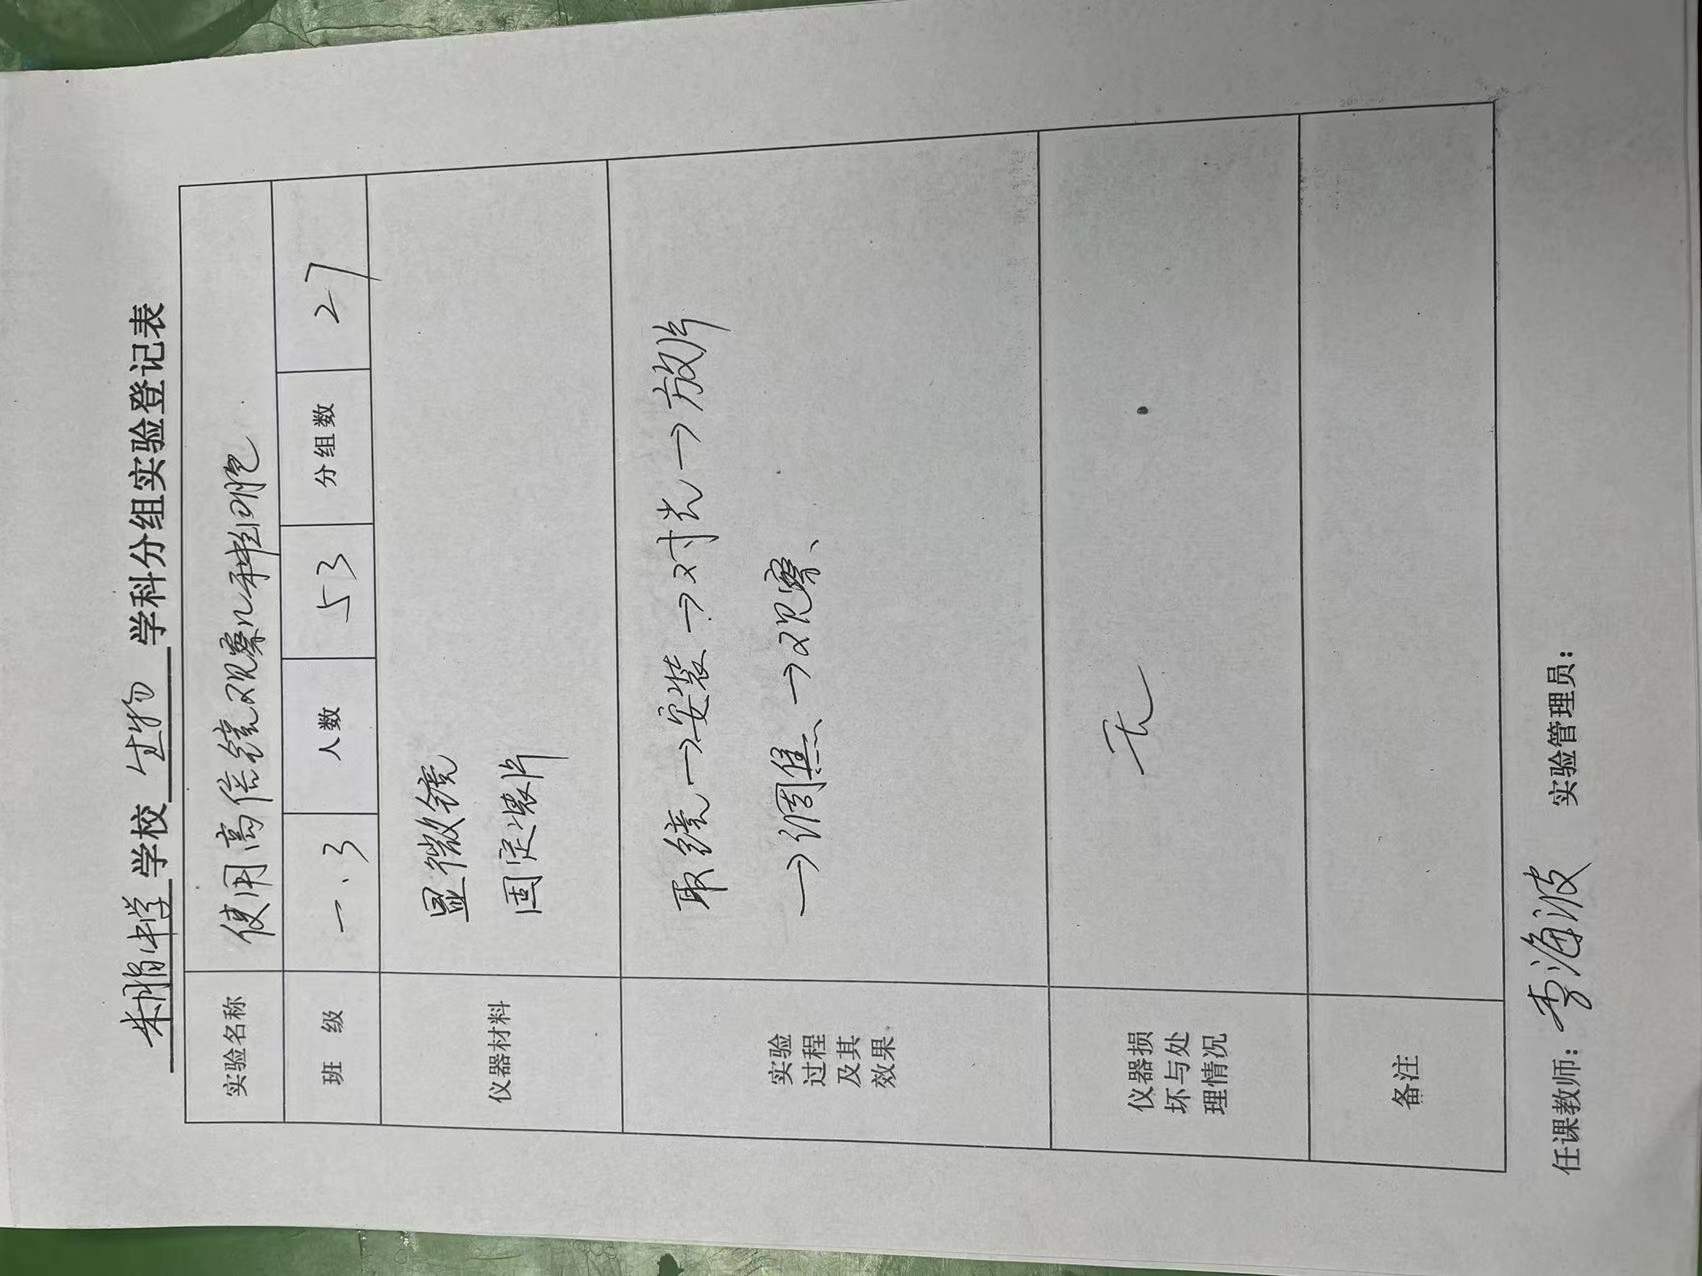 米脂中学学校 生物 学科分组实验登记表
实验名称 使用高倍镜观察几种细胞
班 级 一、3 人数 53 分组数 27
仪器材料 显微镜
固定装片
实验
过程
及其
效果
取镜→安装→对光→放片
→调焦、→观察、
仪器损
坏与处
理情况
无
备注
任课教师：李海波 实验管理员：